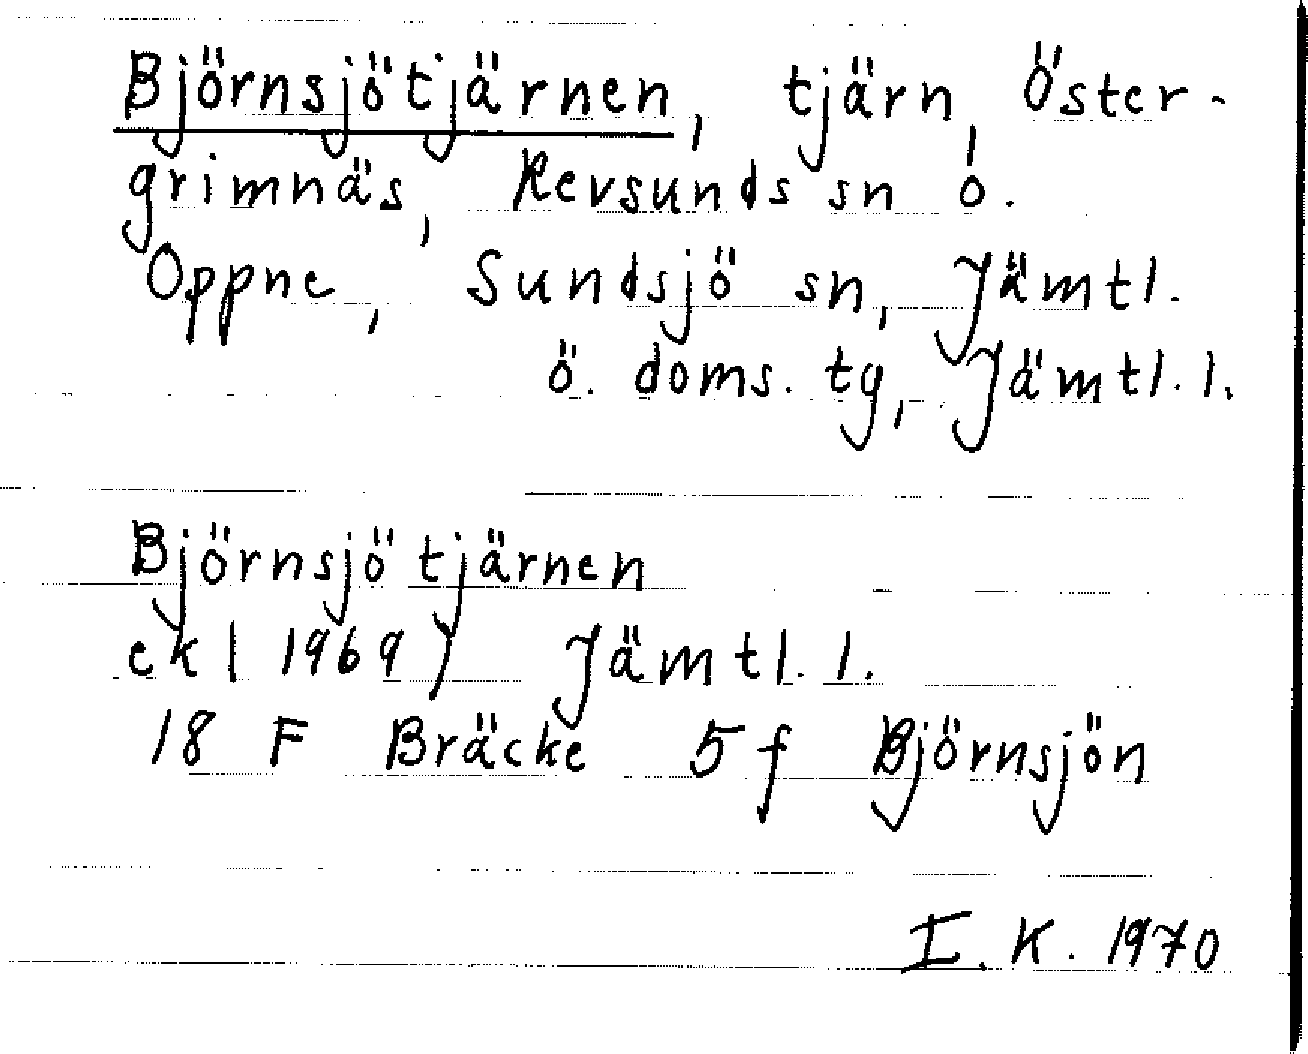 Björnsjötjärnen, tjärn, Öster-
grimnäs, Revsunds sn o.
Oppne, Sundsjö sn, Jämtl.
ö. doms. tg, Jämtl. l.
Björnsjötjärnen
ekl 1969) Jämtl. l.
18 F Bräcke 5 f Björnsjön
I. K. 1970